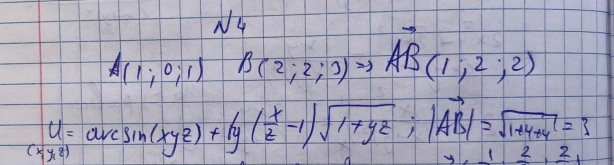 N4
A(1; 0; 1) B(2; 2; 3) => AB(1; 2; 2)
U = arcsin(xyz) + ty(x/z - 1)√1+yz ; |AB| = √1+4+4 = 3
(x,y,z)